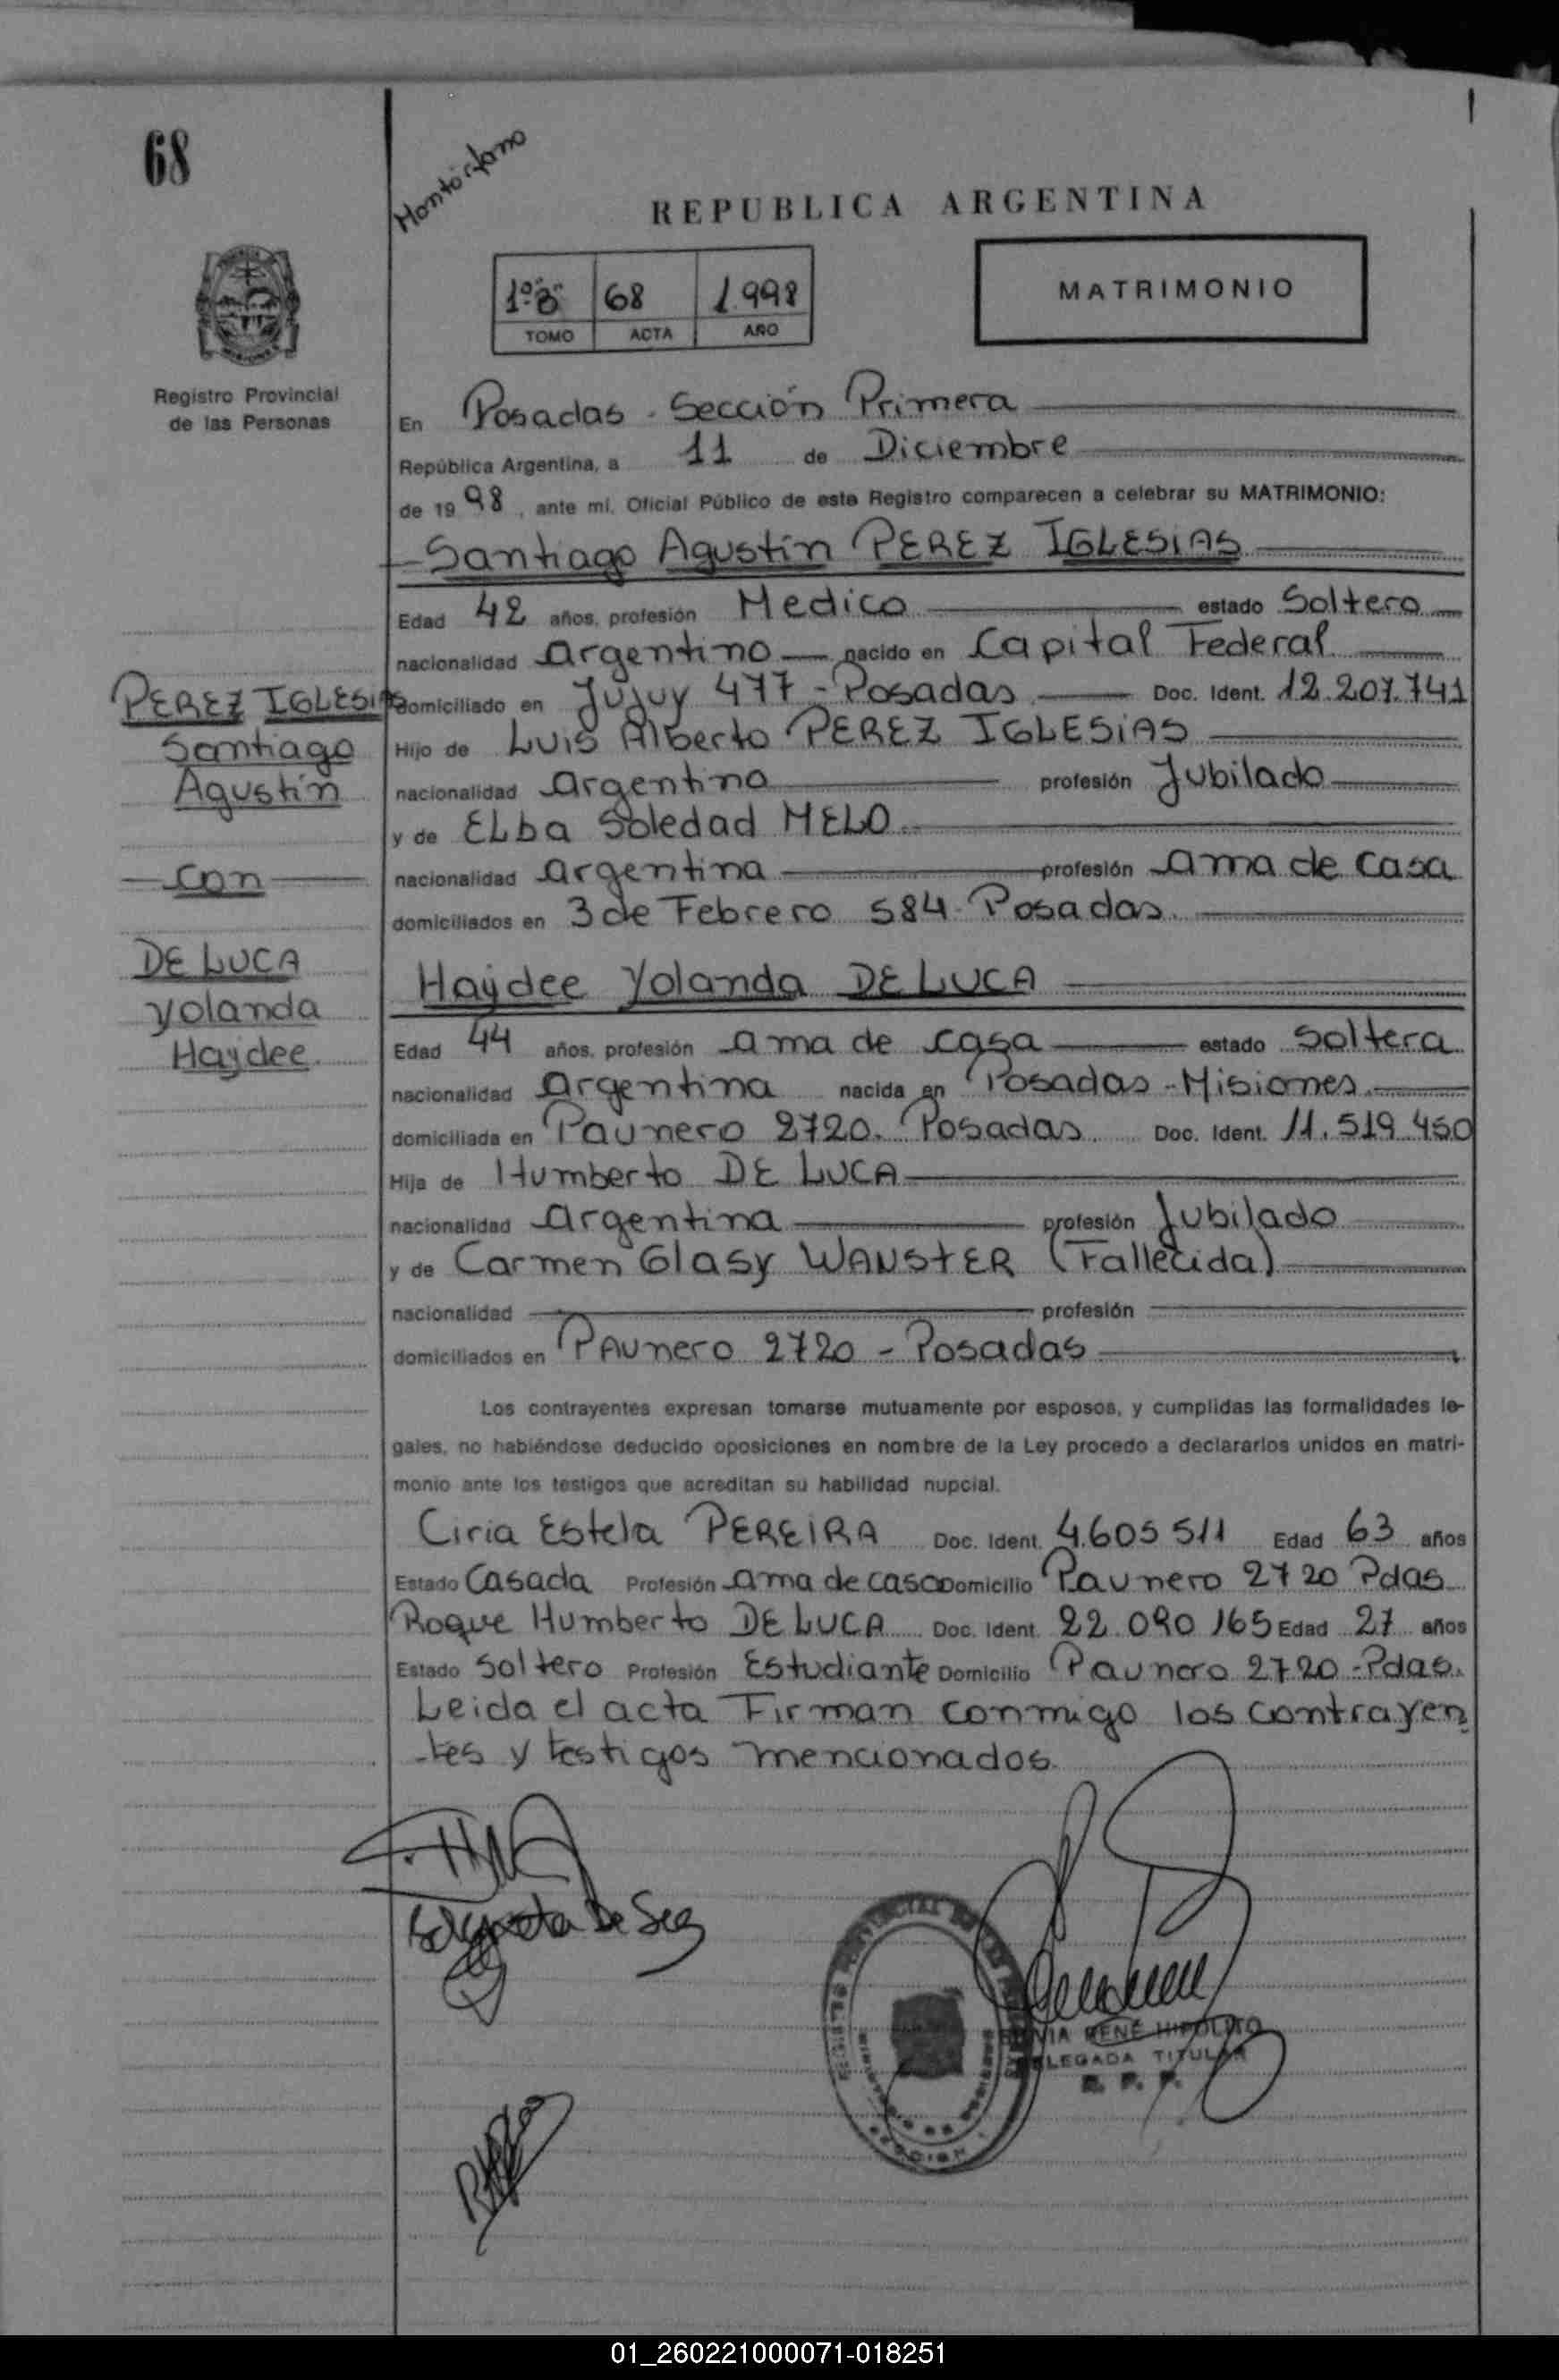 68
REPUBLICA ARGENTINA
1º"B" 68 1.998
TOMO ACTA AÑO
MATRIMONIO
Registro Provincial
de las Personas
En Posadas - Sección Primera
República Argentina, a 11 de Diciembre
de 19 98, ante mí, Oficial Público de este Registro comparecen a celebrar su MATRIMONIO:
Santiago Agustín PEREZ IGLESIAS
Edad 42 años, profesión Medico estado Soltero
nacionalidad argentino nacido en Capital Federal
domiciliado en Jujuy 477 - Posadas Doc. Ident. 12.207.741
Hijo de Luis Alberto PEREZ IGLESIAS
nacionalidad argentino profesión Jubilado
y de ELba Soledad MELO
nacionalidad argentina profesión ama de casa
domiciliados en 3 de Febrero 584 - Posadas
PEREZ IGLESIAS
Santiago
Agustín
con
DE LUCA
Yolanda
Haydee.
Haydee Yolanda DE LUCA
Edad 44 años, profesión ama de casa estado Soltera
nacionalidad argentina nacida en Posadas - Misiones
domiciliada en Paunero 2720. Posadas Doc. Ident. 11.519.450
Hija de Humberto DE LUCA
nacionalidad argentina profesión Jubilado
y de Carmen Glasy WANSTER (Fallecida)
nacionalidad profesión
domiciliados en PAunero 2720 - Posadas
Los contrayentes expresan tomarse mutuamente por esposos, y cumplidas las formalidades le-
gales, no habiéndose deducido oposiciones en nombre de la Ley procedo a declararlos unidos en matri-
monio ante los testigos que acreditan su habilidad nupcial.
Ciria Estela PEREIRA Doc. Ident. 4.605 511 Edad 63 años
Estado Casada Profesión ama de casa Domicilio Paunero 2720 Pdas
Roque Humberto DE LUCA Doc. Ident. 22.090 165 Edad 27 años
Estado Soltero Profesión Estudiante Domicilio Paunero 2720 - Pdas.
Leida el acta Firman conmigo los contrayen
-tes y testigos mencionados.
RENÉ HIPOLITO
DELEGADA TITULAR
R. P. P.
01_260221000071-018251